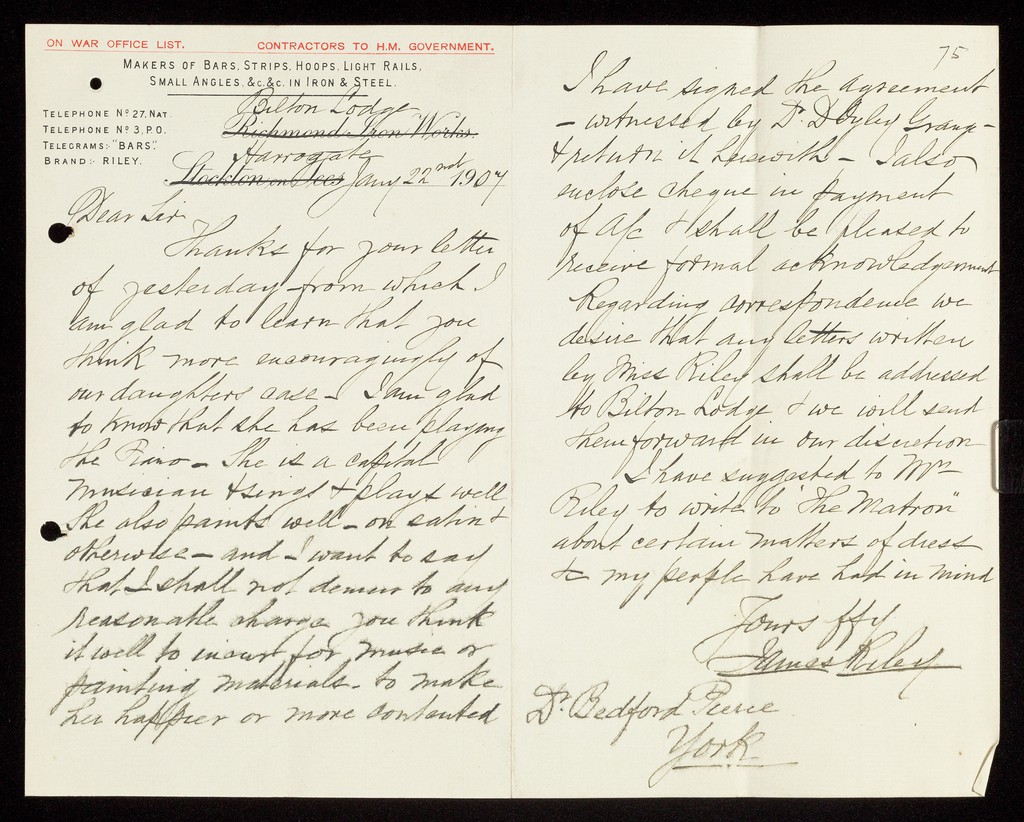 ON WAR OFFICE LIST. CONTRACTORS TO H.M. GOVERNMENT.
MAKERS OF BARS, STRIPS, HOOPS, LIGHT RAILS,
SMALL ANGLES, &c. &c. IN IRON & STEEL.
TELEPHONE Nº 27, NAT.
TELEPHONE Nº 3, P.O.
TELEGRAMS:- "BARS".
BRAND:- RILEY.
Bilton Lodge
Richmond Iron Works.
Harrogate
Stockton on Tees Jany 22nd 1907
Dear Sir
Thanks for your letter
of yesterday from which I
am glad to learn that you
think more encouragingly of
our daughters case - I am glad
to know that she has been playing
the Piano - She is a capital
musician & sings & plays well
She also paints well - on satin &
otherwise - and - I want to say
that I shall not demur to any
reasonable charge you think
it well to incur for music or
painting materials - to make
her happier or more contented
75
I have signed the agreement
- witnessed by Dr. D'Oyley Grange -
& return it herewith - I also
enclose cheque in payment
of A/c & shall be pleased to
receive formal acknowledgement
Regarding correspondence we
desire that any letters written
by Miss Riley shall be addressed
to Bilton Lodge & we will send
them forward in our discretion
I have suggested to Mrs
Riley to write to "The Matron"
about certain matters of dress
&c my people have had in mind
Yours ffy
James Riley
Dr. Bedford Pierce
York